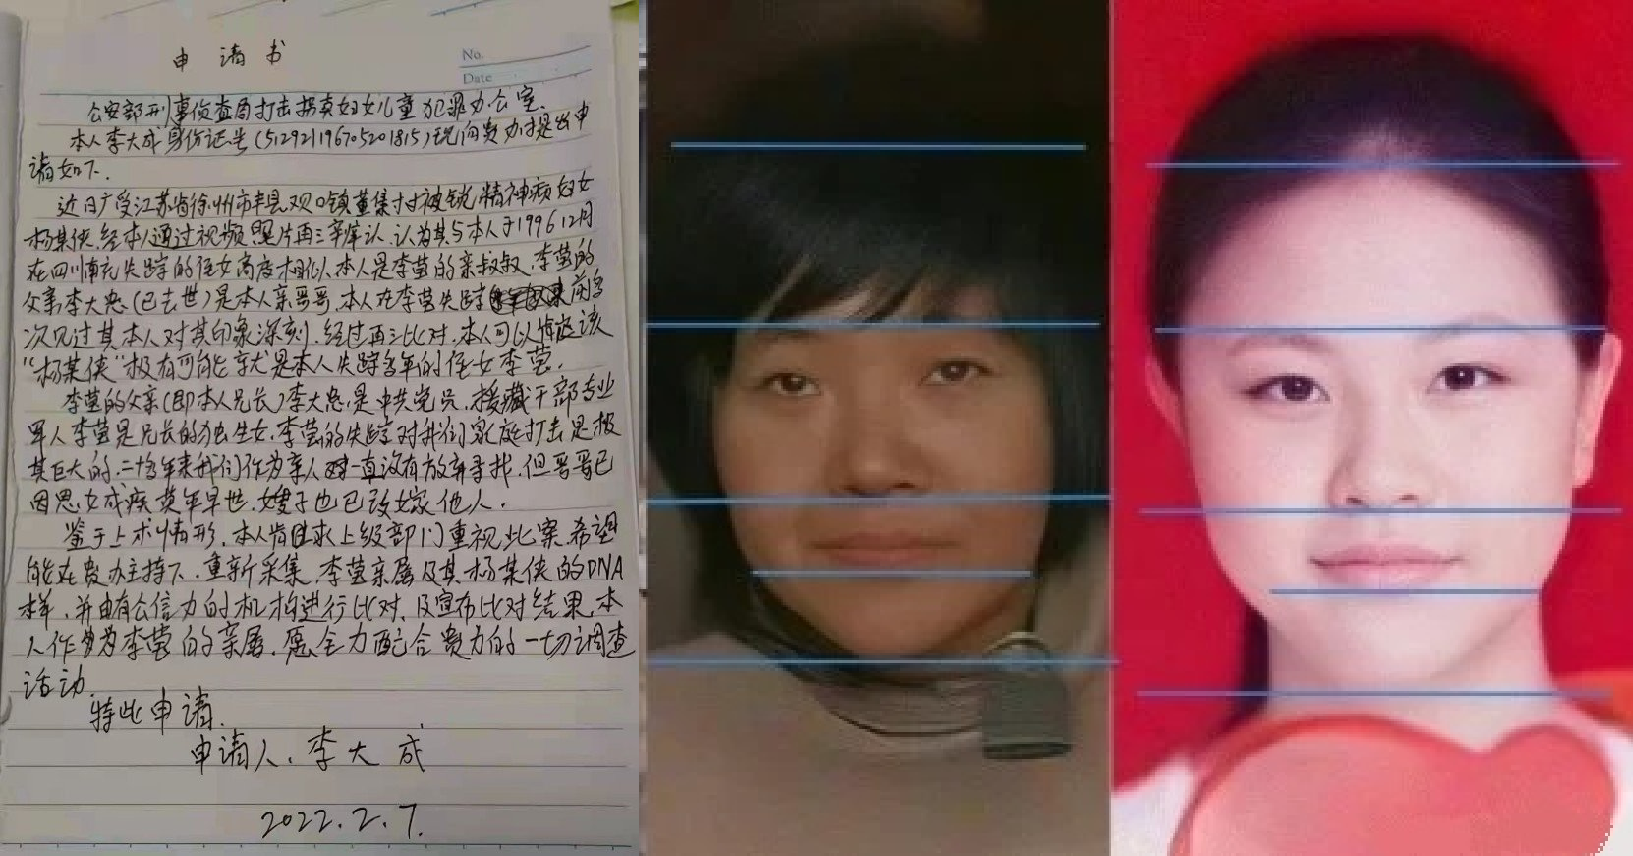 申请书
No.
Date
公安部刑事侦查局打击拐卖妇女儿童犯罪办公室.
本人李大成身份证号(512921196705201815)现向贵办提出申
请如下.
近日广受江苏省徐州市丰县欢口镇董集村被锁精神病妇女
杨某侠.经本人通过视频照片再三辨认.认为其与本人于1996 12月
在四川南充失踪的侄女高度相似.本人是李莹的亲叔叔.李莹的
父亲李大忠(已去世)是本人亲哥哥.本人在李莹失踪前多
次见过其本人对其印象深刻.经过再三比对.本人可以博定该
“杨某侠”极有可能就是本人失踪多年的侄女李莹.
李莹的父亲(即本人兄长)李大忠是中共党员.援藏干部专业
军人李莹是兄长的独生女.李莹的失踪对我们家庭打击是极
其巨大的.二十多年来我们作为亲人对一直没有放弃寻找.但哥哥已
因思女成疾英年早世.嫂子也已改嫁他人.
鉴于上术情形.本人肯且求上级部门重视此案.希望
能在贵办主持下.重新采集.李莹亲属及其杨某侠的DNA
样.并由有公信力的机构进行比对.及宣布比对结果.本
人作为李莹的亲属.愿全力配合贵方的一切调查
活动.
特此申请.
申请人.李大成
2022.2.7.